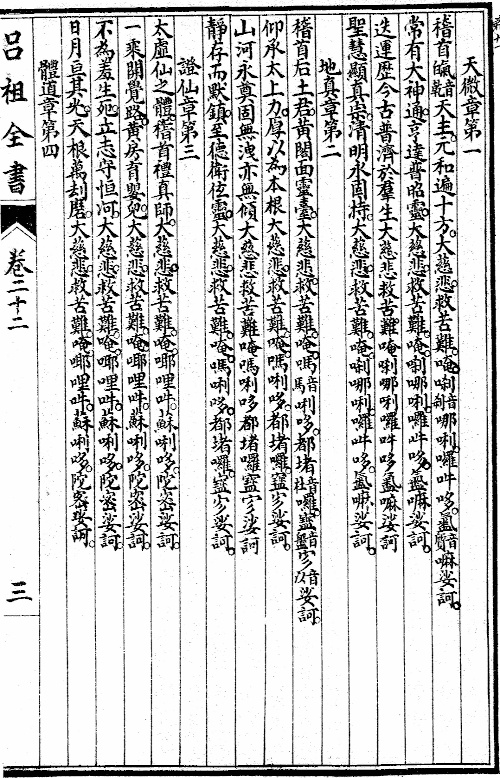 天微章第一
稽首䰟音乾天主。元和遍十方。大慈悲。救苦難。唵。唎音利哪唎。囉吽哆。㘕音質嘛娑訶。
常有大神通。亨達普昭靈。大慈悲。救苦難。唵。唎哪唎。囉吽哆。㘕嘛娑訶。
迭運歷今古普濟於羣生大慈悲救苦難唵唎哪唎囉吽哆㘕嘛娑訶
聖慧顯真崇。清明永固持。大慈悲。救苦難。唵。唎哪唎。囉吽哆。㘕嘛娑訶。
地真章第二
稽首后土君。黃闥面靈臺。大慈悲。救苦難。唵。嗎音馬唎哆。都堵音杜囉。䀇音盤㝎音以娑訶。
仰承太上力。厚以為本根大慈悲。救苦難。唵。嗎唎哆。都堵囉。䀇㝎娑訶。
山河永奠固無洩亦無傾大慈悲救苦難唵嗎唎哆都堵囉䀇㝎娑訶
靜存而默鎮。至德衛位靈。大慈悲。救苦難。唵。嗎唎哆。都堵囉。䀇㝎娑訶。
證仙章第三
太虛仙之體。稽首禮真師。大慈悲。救苦難。唵。啣哩吽。蘇唎哆。陀密娑訶。
一乘開覺路。黃房育嬰兒。大慈悲。救苦難。唵。啣哩吽。蘇唎哆。陀密娑訶。
不為羞生死。立志守恒河。大慈悲。救苦難。唵。啣哩吽。蘇唎哆。陀密娑訶。
日月自其光。天根萬刦磨。大慈悲。救苦難。唵。啣哩吽。蘇唎哆。陀密娑訶。
體道章第四
呂祖全書
卷二十二
三